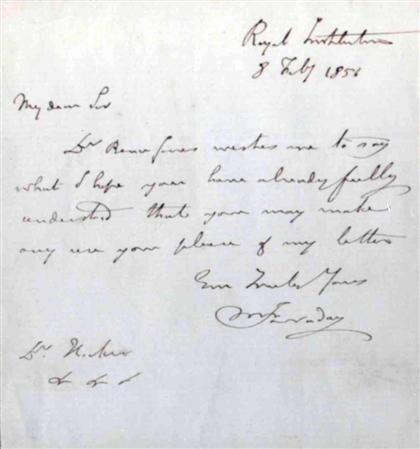 Royal Institution
8 Feby 1856
My dear Sir
Dr Bence Jones wishes me to say
what I hope you have already fully
understood that you may make
any use you please of my letter
Ever Truly Yours
M Faraday
Dr
&c &c &c